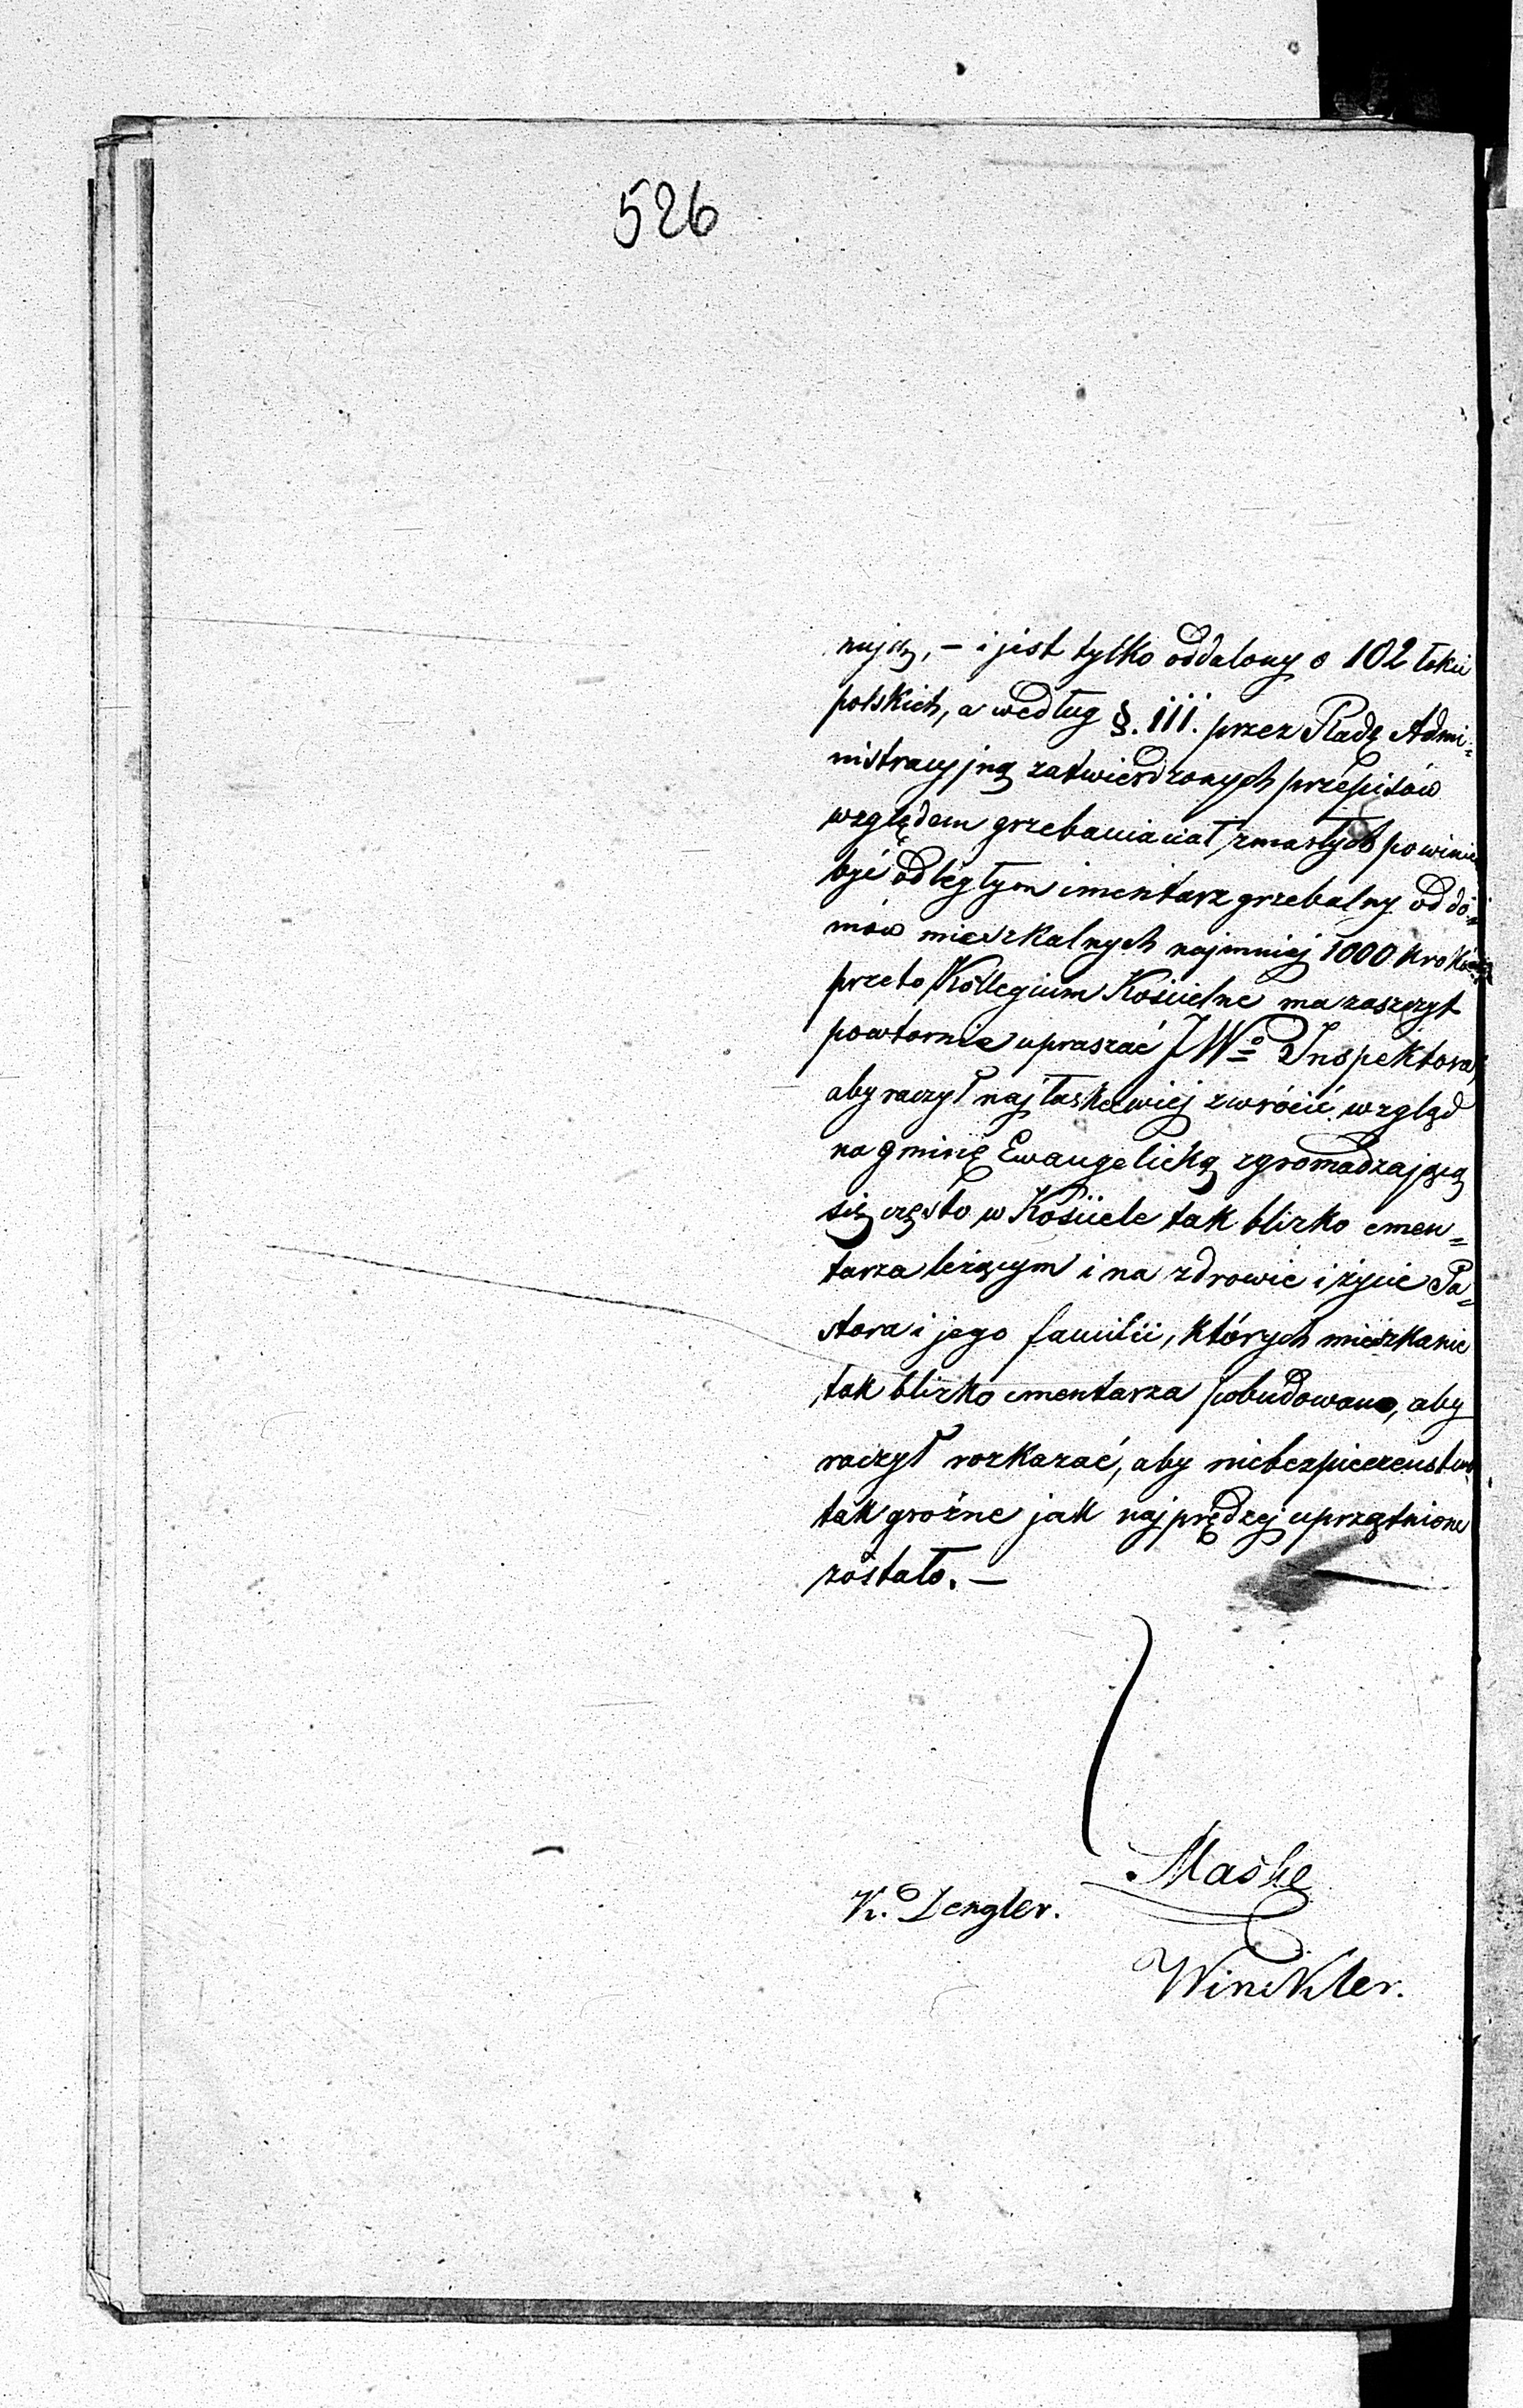 526
nują, – i jest tylko oddalony o 102 łokci
polskich, a według §. III. przez Radę Admi=
nistracyjną zatwierdzonych przepisów
względem grzebania ciał zmarłych powinien
być odległym cmentarz grzebalny od do=
mów mieszkalnych najmniej 1000 kroków
przeto Kollegium Kościelne ma zaszczyt
powtornie upraszać JWo Inspektora,
aby raczył najłaskawiej zwrócić wzgląd
na gminę Ewangelicką zgromadzającą
się często w Kościele tak blizko cmen=
tarza leżącym i na zdrowie i życie Pa=
stora i jego familii, których mieszkanie
tak blizko cmentarza pobudowano, aby
raczył rozkazać, aby niebezpieczeństwo
tak groźne jak najprędzej uprzątnione
zostało. –
Maske
K. Lengler.
Winkler.